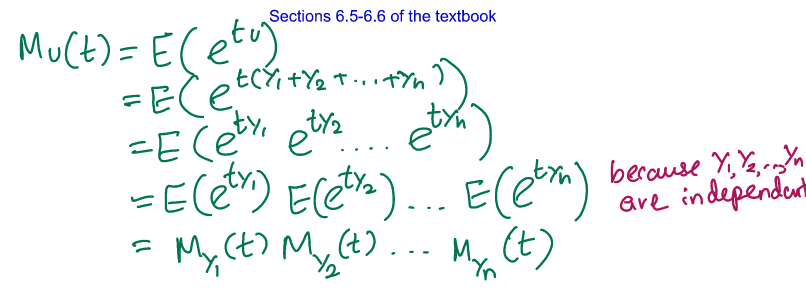 Sections 6.5-6.6 of the textbook
M_U(t) = E(e^{tU})
= E(e^{t(Y_1+Y_2+...+Y_n)})
= E(e^{tY_1} e^{tY_2} .... e^{tY_n})
= E(e^{tY_1}) E(e^{tY_2}) ... E(e^{tY_n}) because Y_1, Y_2, .., Y_n
are independant
= M_{Y_1}(t) M_{Y_2}(t) ... M_{Y_n}(t)